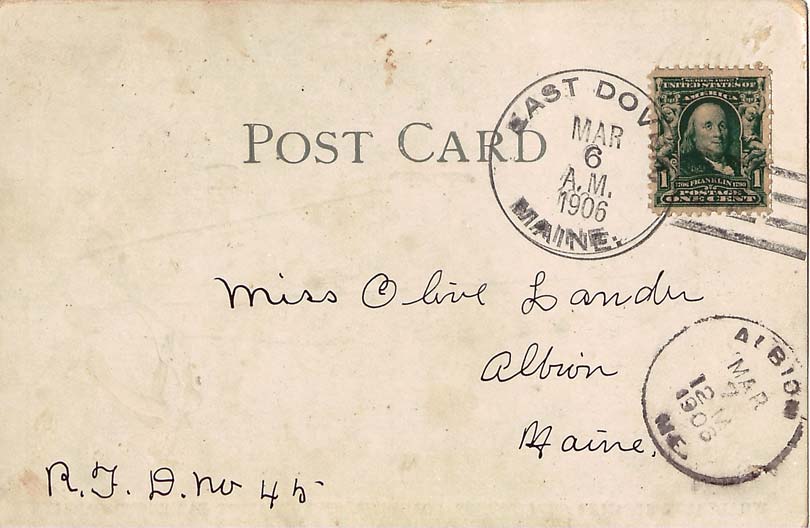 POST CARD
EAST DOV
MAR
6
A.M.
1906
MAINE.
SERIES 1902
UNITED STATES OF
AMERICA
1 1
1706 FRANKLIN 1790
POSTAGE
ONE CENT
Miss Olive Lander
Albion
Maine.
R.F.D. No 45
ALBION
MAR
12 M
1906
ME.